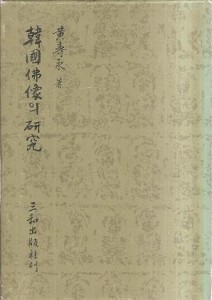 韓國佛像의 硏究
黃壽永 著
三和出版社刊